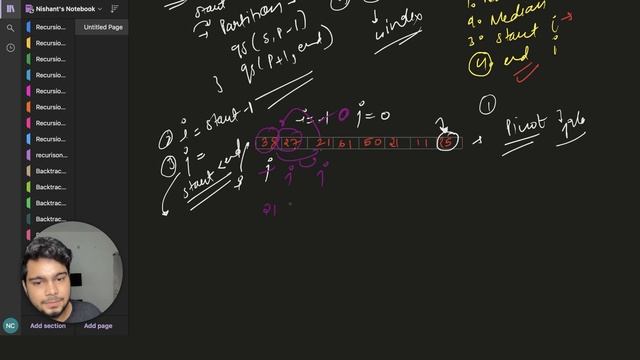 Nishant's Notebook
Untitled Page
Recursio...
Recursio...
Recursio...
Recursio...
Recursio...
Recursio...
Recursio...
recurison...
Backtrac...
Backtrac...
Backtrac...
Backtrac...
Backtrac...
Backtrac...
NC
Add section
Add page
start
→ Partition -
qs(S, P-1)
}
qs(P+1, end)
↓ index
Median
3. start i
4. end
①
② i = start - 1
i = -1
j = 0
0
③ j =
start < end
38 27 21 61 50 21 11 35
→ Pivot
j
j
j
21